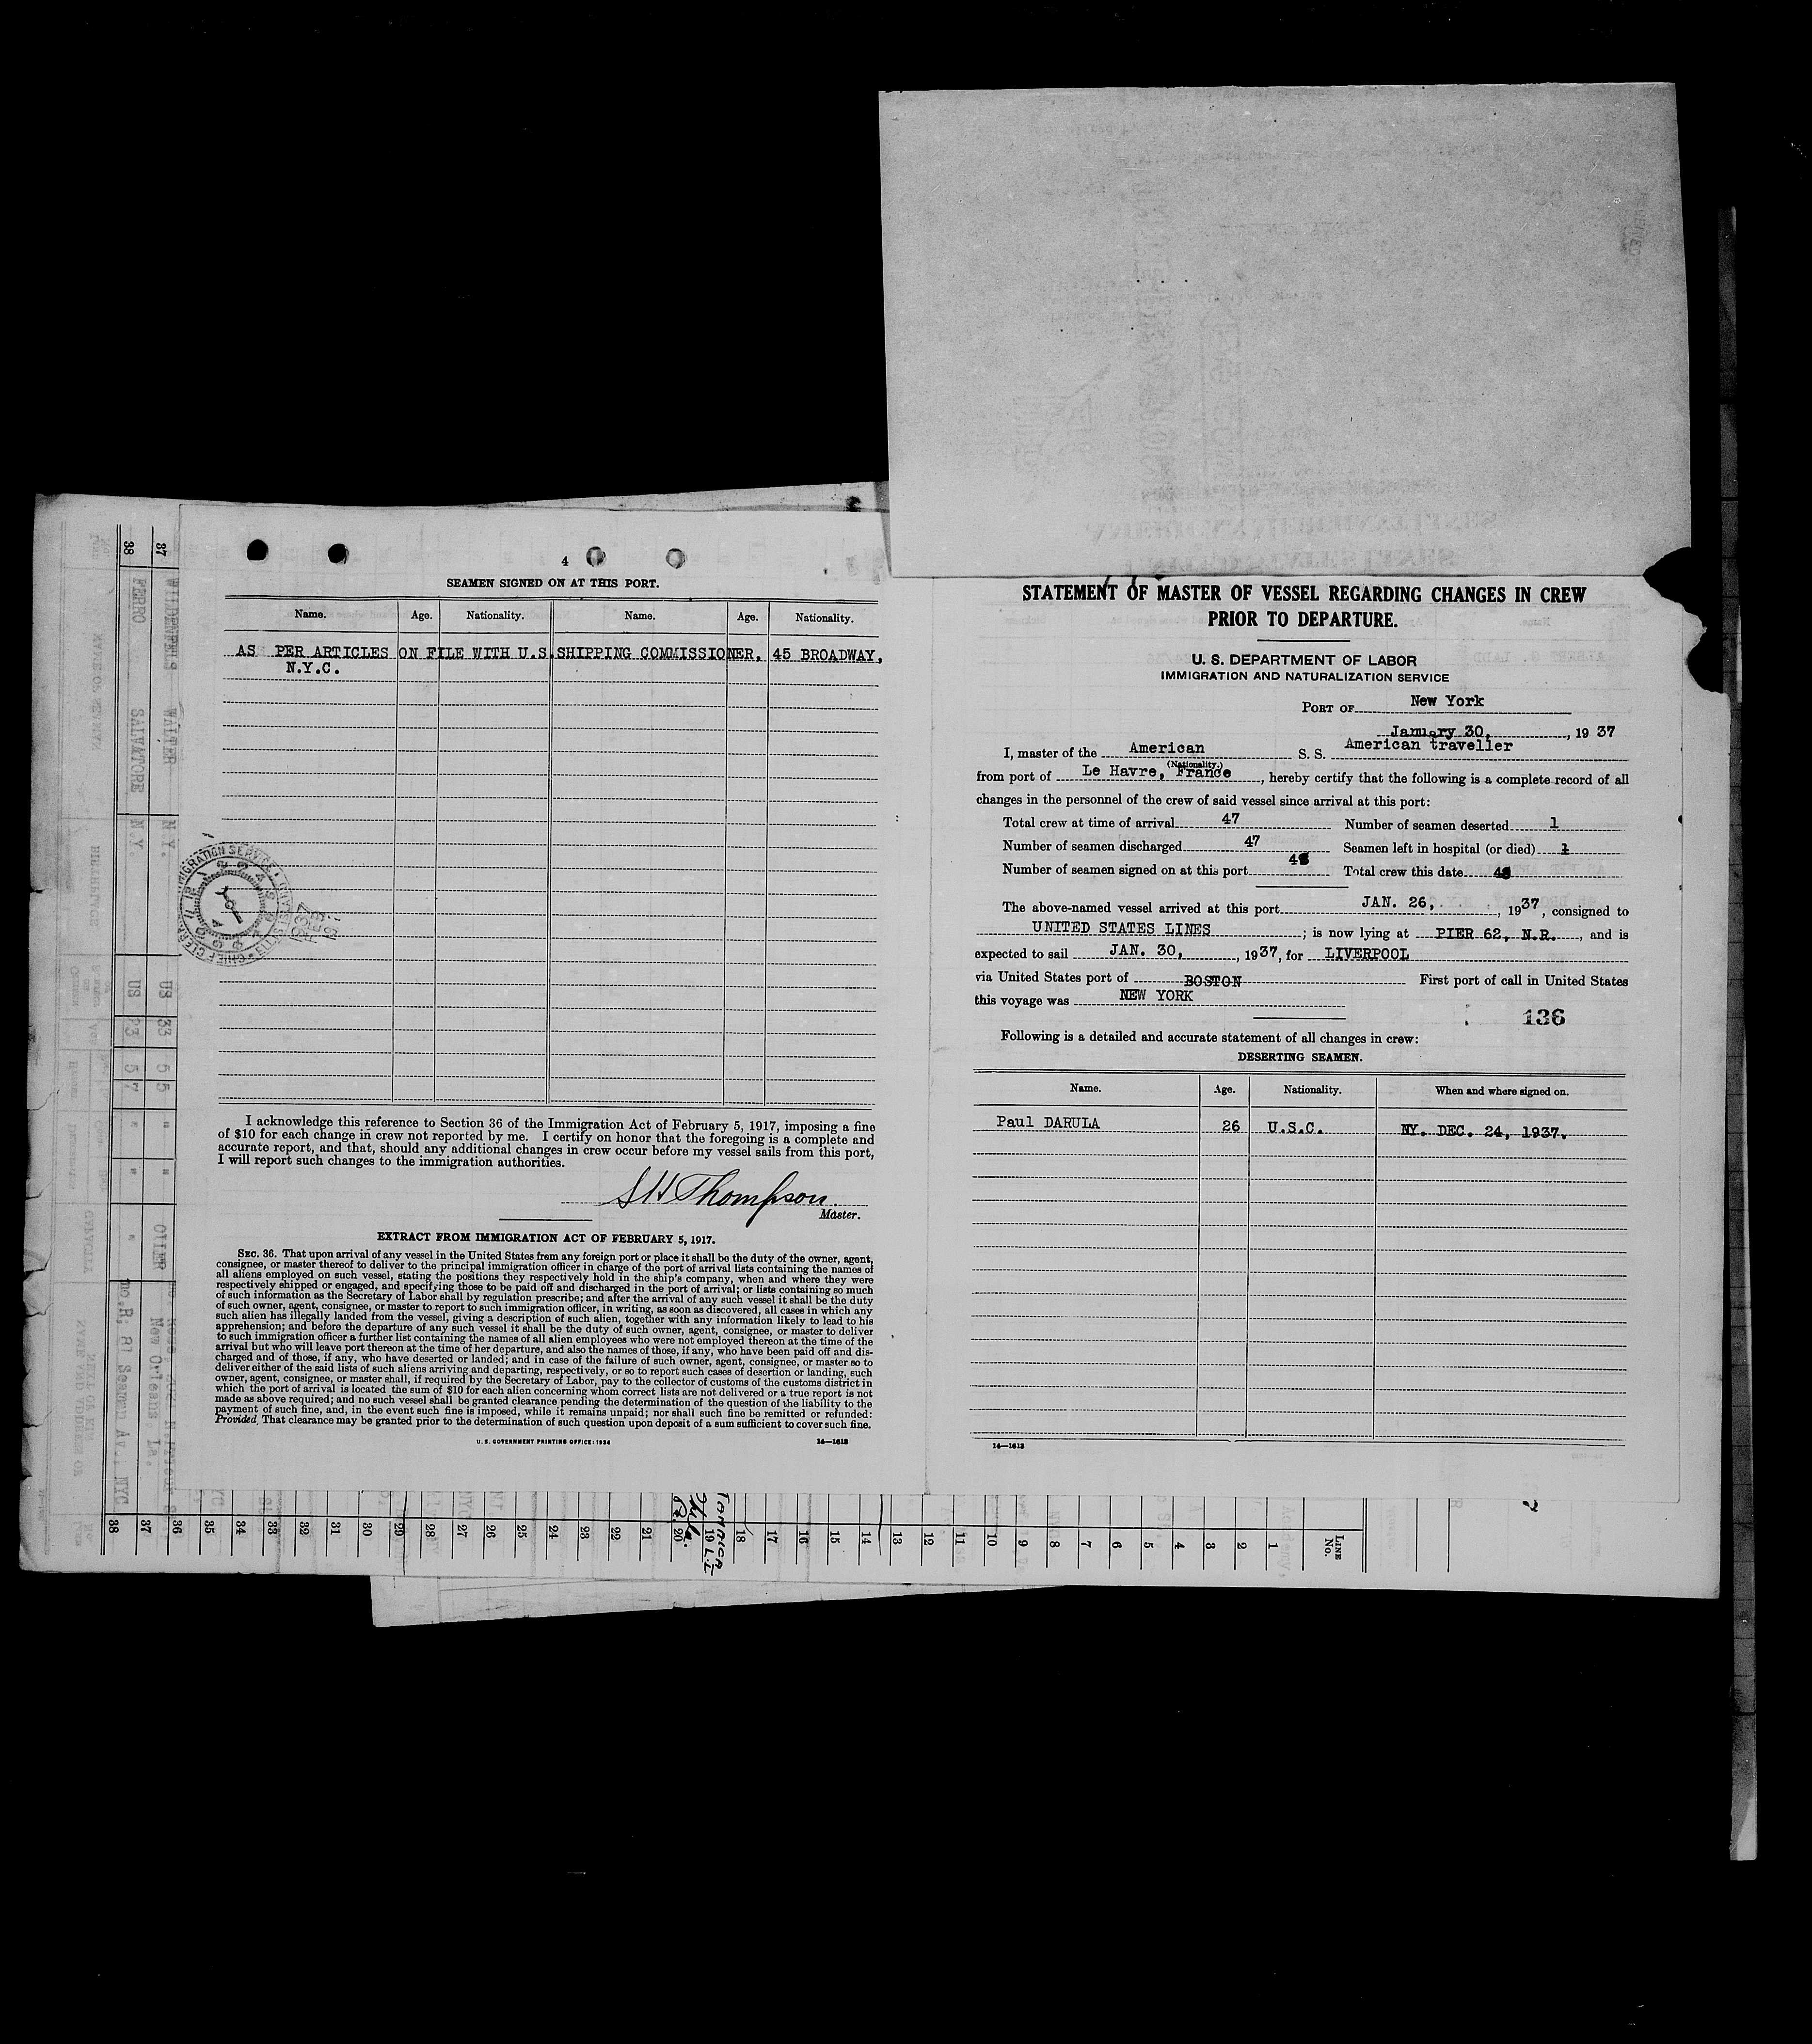 4
SEAMEN SIGNED ON AT THIS PORT.
Name. Age. Nationality. Name. Age. Nationality.
AS PER ARTICLES ON FILE WITH U.S. SHIPPING COMMISSIONER, 45 BROADWAY,
N.Y.C.
I acknowledge this reference to Section 36 of the Immigration Act of February 5, 1917, imposing a fine
of $10 for each change in crew not reported by me. I certify on honor that the foregoing is a complete and
accurate report, and that, should any additional changes in crew occur before my vessel sails from this port,
I will report such changes to the immigration authorities.
S H Thompson
Master.
EXTRACT FROM IMMIGRATION ACT OF FEBRUARY 5, 1917.
SEC. 36. That upon arrival of any vessel in the United States from any foreign port or place it shall be the duty of the owner, agent,
consignee, or master thereof to deliver to the principal immigration officer in charge of the port of arrival lists containing the names of
all aliens employed on such vessel, stating the positions they respectively hold in the ship's company, when and where they were
respectively shipped or engaged, and specifying those to be paid off and discharged in the port of arrival; or lists containing so much
of such information as the Secretary of Labor shall by regulation prescribe; and after the arrival of any such vessel it shall be the duty
of such owner, agent, consignee, or master to report to such immigration officer, in writing, as soon as discovered, all cases in which any
such alien has illegally landed from the vessel, giving a description of such alien, together with any information likely to lead to his
apprehension; and before the departure of any such vessel it shall be the duty of such owner, agent, consignee, or master to deliver
to such immigration officer a further list containing the names of all alien employees who were not employed thereon at the time of the
arrival but who will leave port thereon at the time of her departure, and also the names of those, if any, who have been paid off and dis-
charged and of those, if any, who have deserted or landed; and in case of the failure of such owner, agent, consignee, or master so to
deliver either of the said lists of such aliens arriving and departing, respectively, or so to report such cases of desertion or landing, such
owner, agent, consignee, or master shall, if required by the Secretary of Labor, pay to the collector of customs of the customs district in
which the port of arrival is located the sum of $10 for each alien concerning whom correct lists are not delivered or a true report is not
made as above required; and no such vessel shall be granted clearance pending the determination of the question of the liability to the
payment of such fine, and, in the event such fine is imposed, while it remains unpaid; nor shall such fine be remitted or refunded:
Provided, That clearance may be granted prior to the determination of such question upon deposit of a sum sufficient to cover such fine.
U. S. GOVERNMENT PRINTING OFFICE: 1934 14—1613
STATEMENT OF MASTER OF VESSEL REGARDING CHANGES IN CREW
PRIOR TO DEPARTURE.
U. S. DEPARTMENT OF LABOR
IMMIGRATION AND NATURALIZATION SERVICE
PORT OF New York
January 30, , 19 37
I, master of the American S. S. American traveller
(Nationality.)
from port of Le Havre, France , hereby certify that the following is a complete record of all
changes in the personnel of the crew of said vessel since arrival at this port:
Total crew at time of arrival 47 Number of seamen deserted 1
Number of seamen discharged 47 Seamen left in hospital (or died) 1
Number of seamen signed on at this port Total crew this date
The above-named vessel arrived at this port JAN. 26, , 1937, consigned to
UNITED STATES LINES ; is now lying at PIER 62, N.R. , and is
expected to sail JAN. 30, , 1937, for LIVERPOOL
via United States port of BOSTON First port of call in United States
this voyage was NEW YORK
136
Following is a detailed and accurate statement of all changes in crew:
DESERTING SEAMEN.
Name. Age. Nationality. When and where signed on.
Paul DARULA 26 U.S.C. NY. DEC. 24, 1937.
14—1613
38 FERRO SALVATORE N.Y. US 23 5 7 " " "
37 WILDENFELS WALTER N.Y. US 33 5 5 " " OILER
New Orleans, La.
NYC
38 37 36 35 34 33 32 31 30 29 28 27 26 25 24 23 22 21 20 19 18 17 16 15 14 13 12 11 10 9 8 7 6 5 4 3 2 1 LINE No.